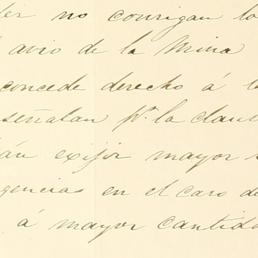 no consigan lo
avio de la Mina
concede derecho á l
señalan pª. la clau
án exijir mayor
gencias en el caso de
á mayor cantida